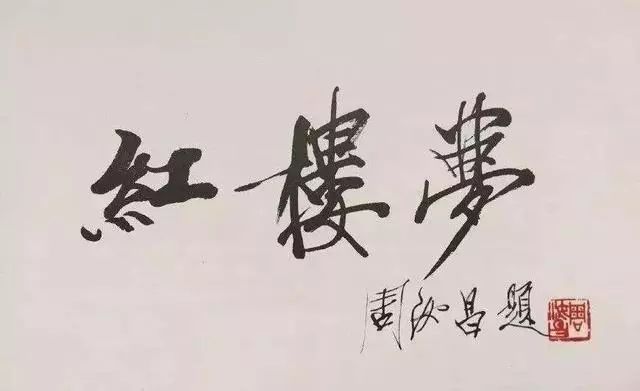 紅樓夢
周汝昌題